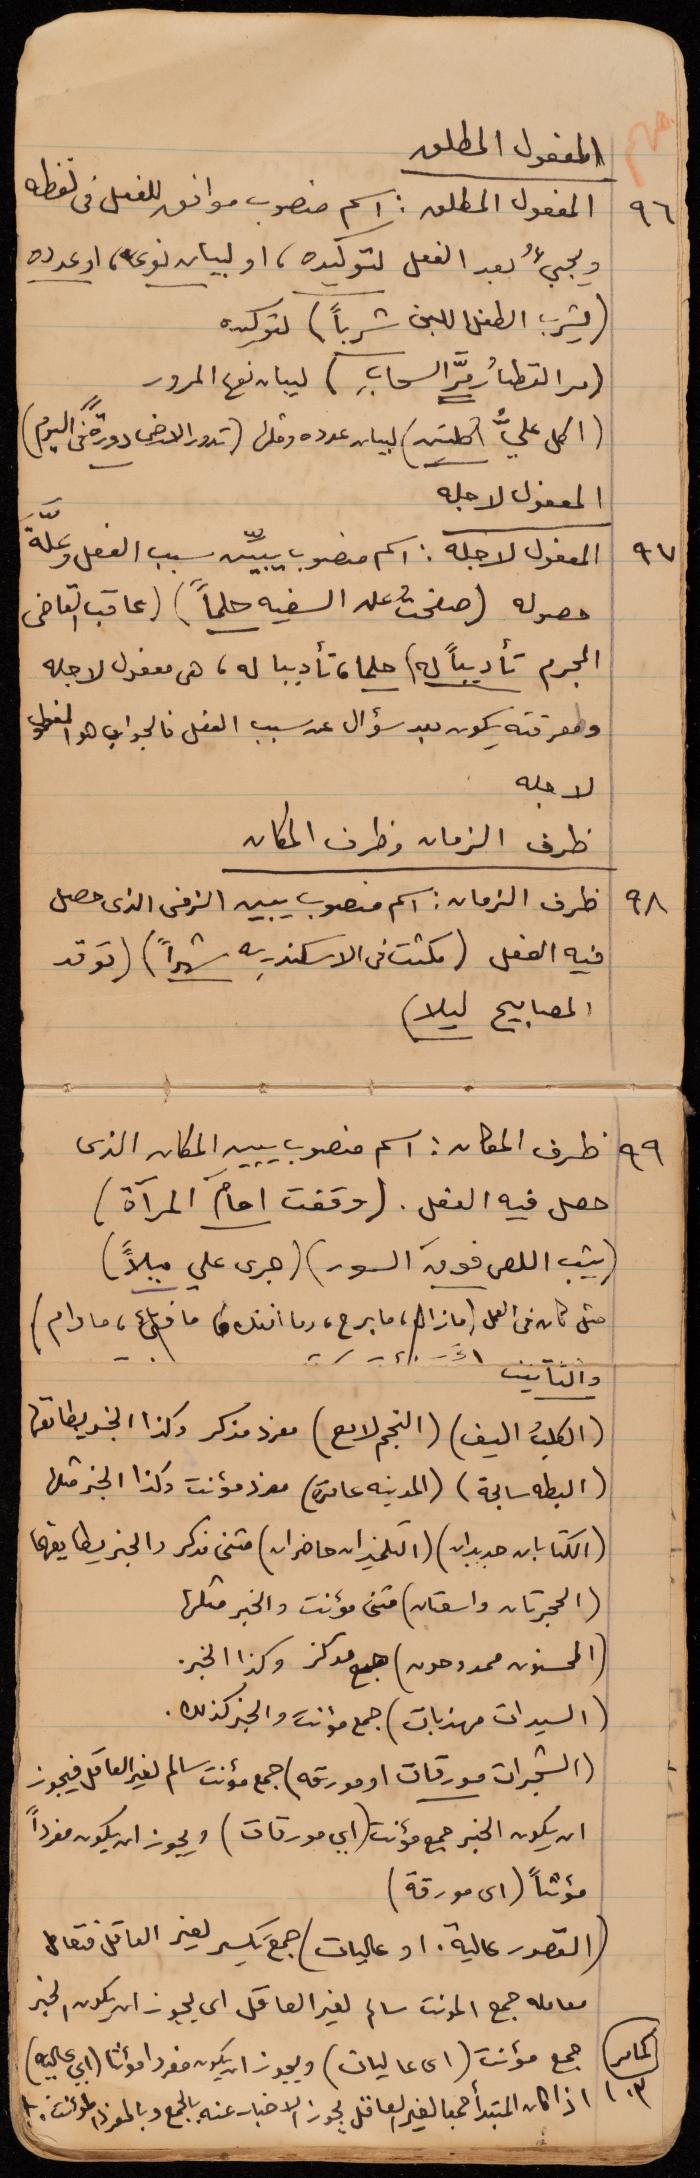 المفعول المطلق
٩٦ المفعول المطلق : اسم منصوب موافق للفعل فى لفظه
ويجيء بعد الفعل لتوكيده ، او لبيان نوعه ، او عدده
(يشرب الطفل اللبن شرباً) لتوكيده
(مر القطار مرَّ السحاب) لبيان نوع المرور
(اكل عليٌّ اكلتين) لبيان عدده ومثلها (تدور الارض دورةً فى اليوم)
المفعول لاجله
٩٧ المفعول لاجله : اسم منصوب يبيّن سبب الفعل وعلَّةَ
حصوله (صفحتُ عن السفيه حلماً) (عاقب القاضى
المجرم تأديباً له) حلما ، تأديبا له ، هى مفعول لاجله
ومعرفته يكون بعد سؤال عن سبب الفعل فالجواب هو المفعول
لاجله
ظرف الزمان وظرف المكان
٩٨ ظرف الزمان : اسم منصوب يبين الزمن الذى حصل
فيه الفعل (مكثت فى الاسكندريه شهراً) (توقد
المصابيح ليلا)
٩٩ ظرف المكان : اسم منصوب يبين المكان الذى
حصل فيه الفعل . (وقفت امامَ المرآة)
(يثب اللص فوقَ السور) (جرى علي ميلاً)
مثل كان فى العمل (مازال ، مابرح ، وما انفك ، ما فتئ ، مادام)
والتأنيث
(الكلبُ اليف) (النجم لامع) مفرد مذكر وكذا الخبر يطابقها
(البطه سابحة) (المدينه عامرة) مفرد مؤنث وكذا الخبر مثلها
(الكتابان جديدان) (التلميذان حاضران) مثنى مذكر والخبر يطابقها
(الحجرتان واسعتان) مثنى مؤنث والخبر مثلها
(المحسنون ممدوحون) جمع مذكر وكذا الخبر .
(السيدات مهذبات) جمع مؤنث والخبر كذلك .
(الشجرات مورقات او مورقه) جمع مؤنث سالم لغير العاقل فيجوز
ان يكون الخبر جمع مؤنث (اي مورقات) ويجوز ان يكون مفرداً
مؤنثاً (اى مورقة)
(القصور عالية . او عاليات) جمع تكسير لغير العاقل فتعامل
معامله جمع المونث سالم لغير العاقل اى يجوز ان يكون الخبر
جمع مؤنث (اى عاليات) ويجوز ان يكون مفردا مؤنثا (اي عاليه)
١٠٣ اذا كان المبتدأ جمعا لغير العاقل يجوز الاخبار عنه بالجمع وبالمفرد المؤنث .